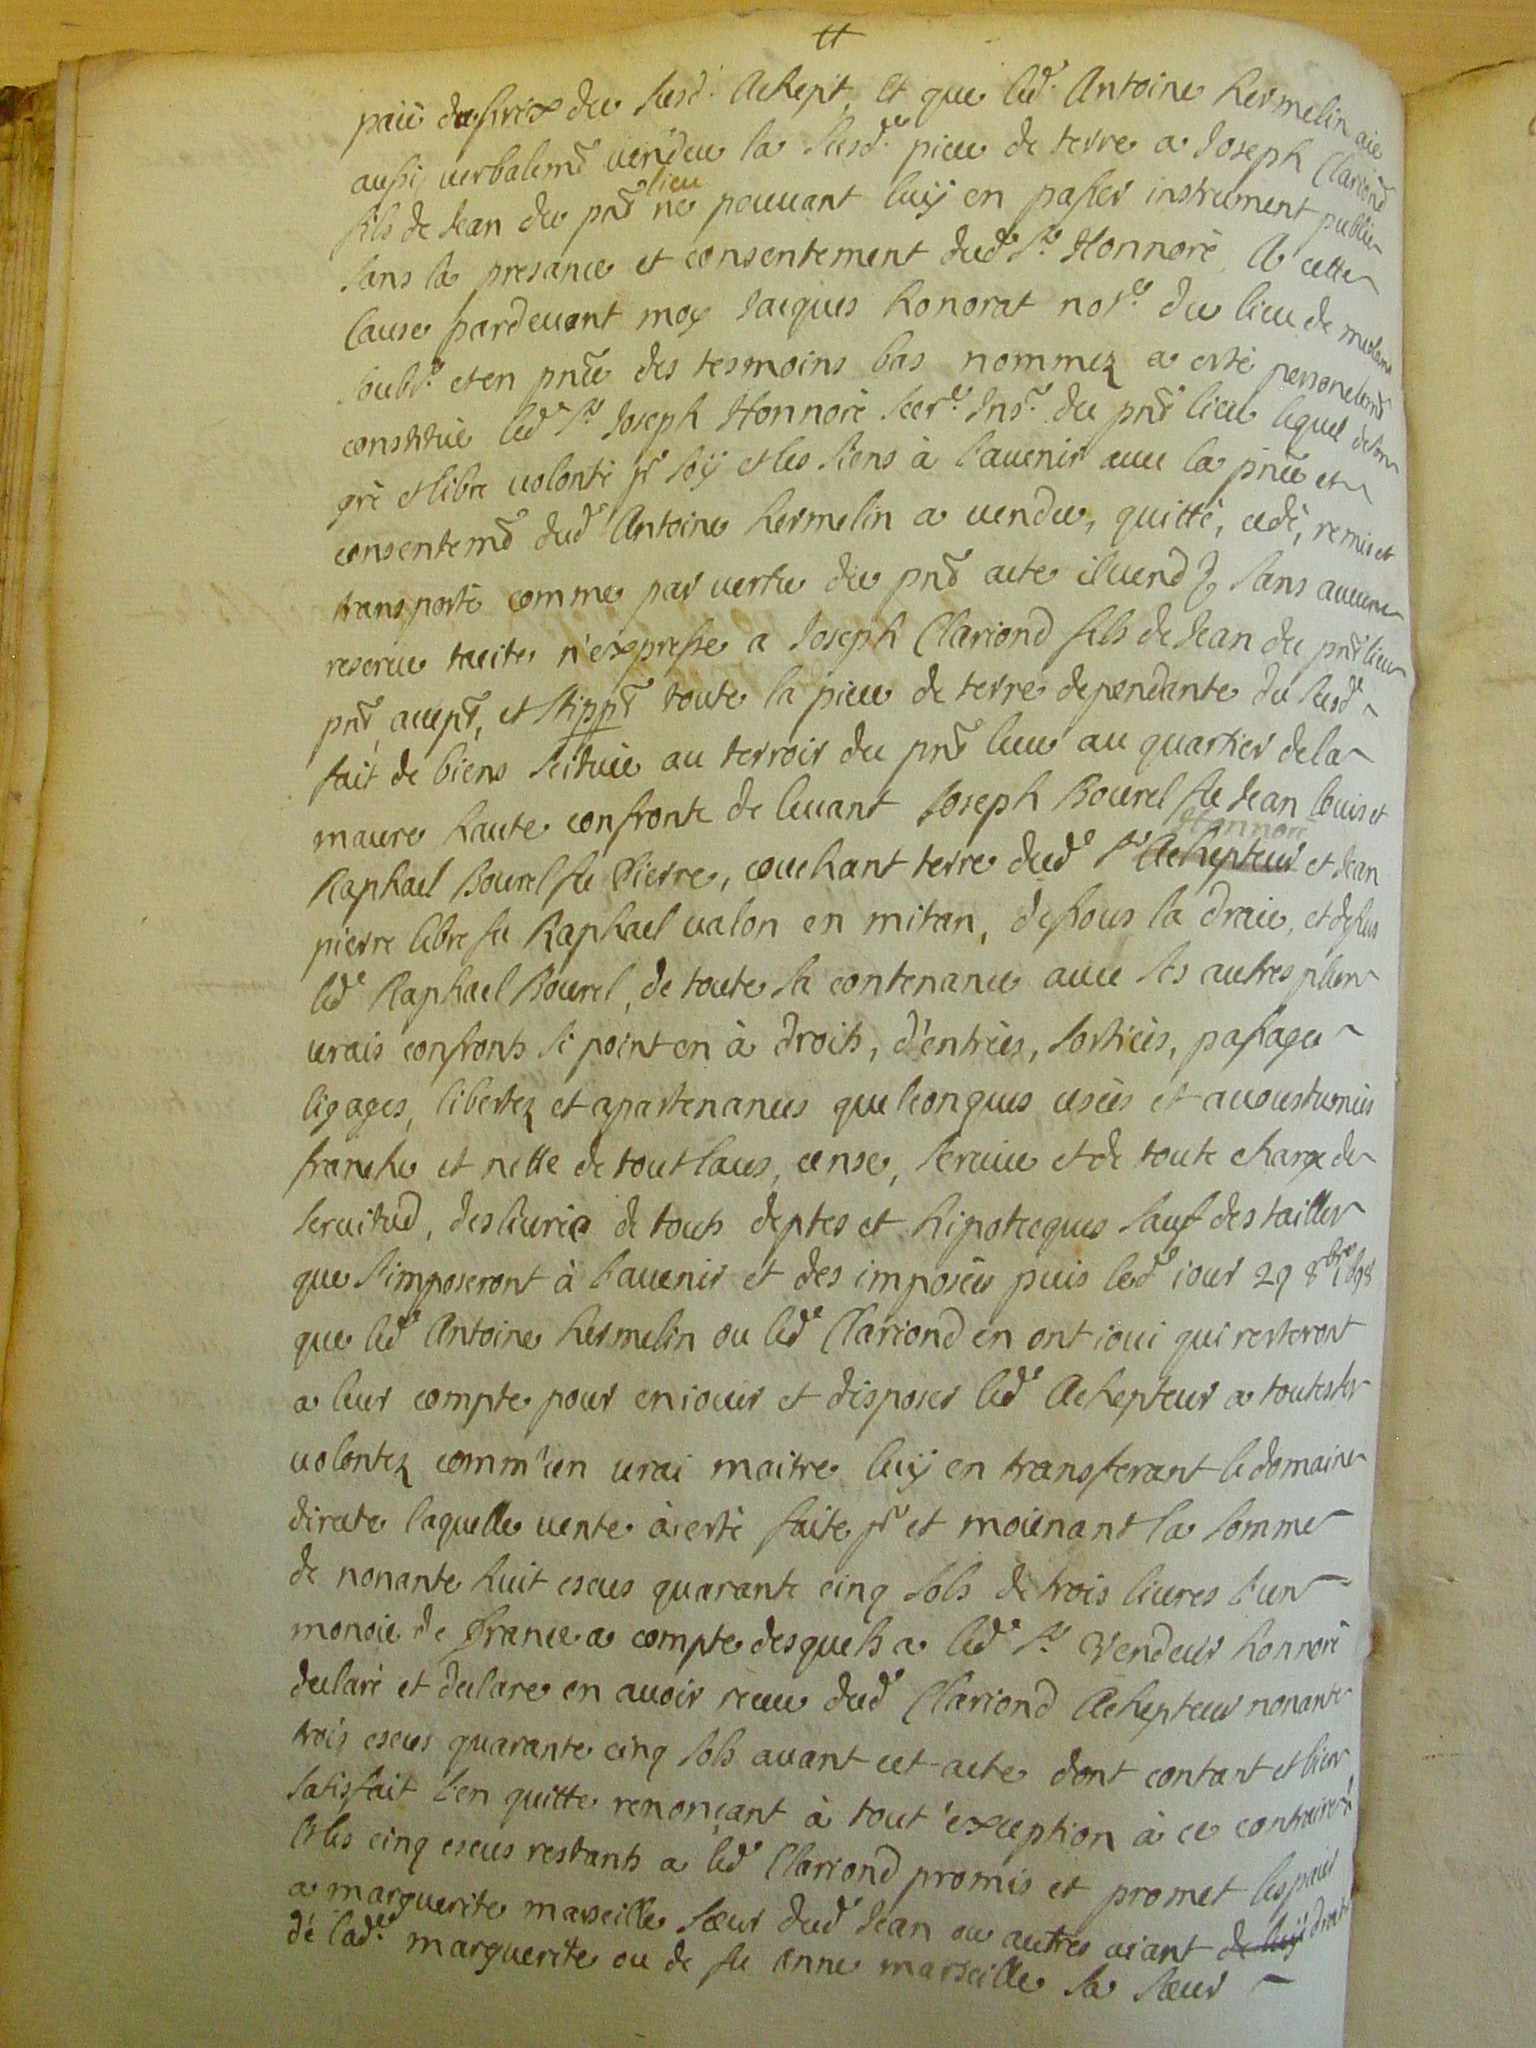 tt
paié du prix du susd. Achept, Et que led. Antoine hermelin aié
aussi verbalemt vendeu la susd.e piece de terre a Joseph Clariond
fils de Jean du pnt lieu ne pouvant luÿ en passer instrument public
sans la presance et consentement dud. Sr. Honnoré A cette
Cause pardevant moy Jacques honorat nore. du lieu de
soubs.é et en pnce des tesmoins bas nommez a esté personelemt
constitué led. Sr. Joseph Honnoré Secre. Insr. du pnt lieu lequel de son
gré et libre volonté pr soÿ et les siens à l'avenir avec la pnce et
consentemt dud. Antoine hermelin a vendu, quitté, cedé, remis et
transporté comme par vertu du pnt acte il vend & sans aucune
reserve tacite n'expresse a Joseph Clariond fils de Jean du pnt lieu
pnt, accept, et stippt toute la piece de terre dependante du susd.
fait de biens scituée au terroir du pnt lieu au quartier de la
maure haute confronte de levant Joseph Bourel fu Jean louis et
Raphael Bourel fu Pierre, couchant terre dud. Sr Achepteur Honnoré et Jean
pierre libre fu Raphael valon en mitan, dessous la draie, et dessus
led. Raphael Bourel, de toute sa contenance avec ses autres plus
vrais confronts si point en à droits, d'entrées, sortiës, passages
ligages, libertez et apartenances quelconques usées et accoustumées
franche et nette de tout laus, cense, service et de toute charge de
servitud, desliurée de touts deptes et hipotecques sauf des tailles
que s'imposeront à l'avenir et des imposées puis led. iour 29 8bre 1698
que led. Antoine hermelin ou led. Clariond en ont ioui qui resteront
a leur compte pour en iouir et disposer led. Achepteur a toutes ses
volontez comm'un vrai maitre luÿ en transferant le domaine
directe laquelle vente à esté faite pr et moienant la somme
de nonante huit escus quarante cinq sols de trois livres l'un
monoie de france a compte desquels a led. Sr. Vendeur honnoré
declaré et declare en avoir receu dud. Clariond Achepteur nonante
trois escus quarante cinq sols avant cet acte dont contant et bien
satisfait l'en quitte renonçant à tout'exception à ce contraire
Et les cinq escus restants a led. Clariond promis et promet les paier
a marguerite marseille sœur dud. Jean ou autres aiant de luÿ droit
dé lad.e marguerite ou de fu Anne marseille sa sœur